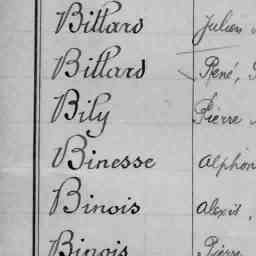 Billard Julien
Billard René,
Bily Pierre
Binesse Alphon
Binois Alexis,
Binois Pierre